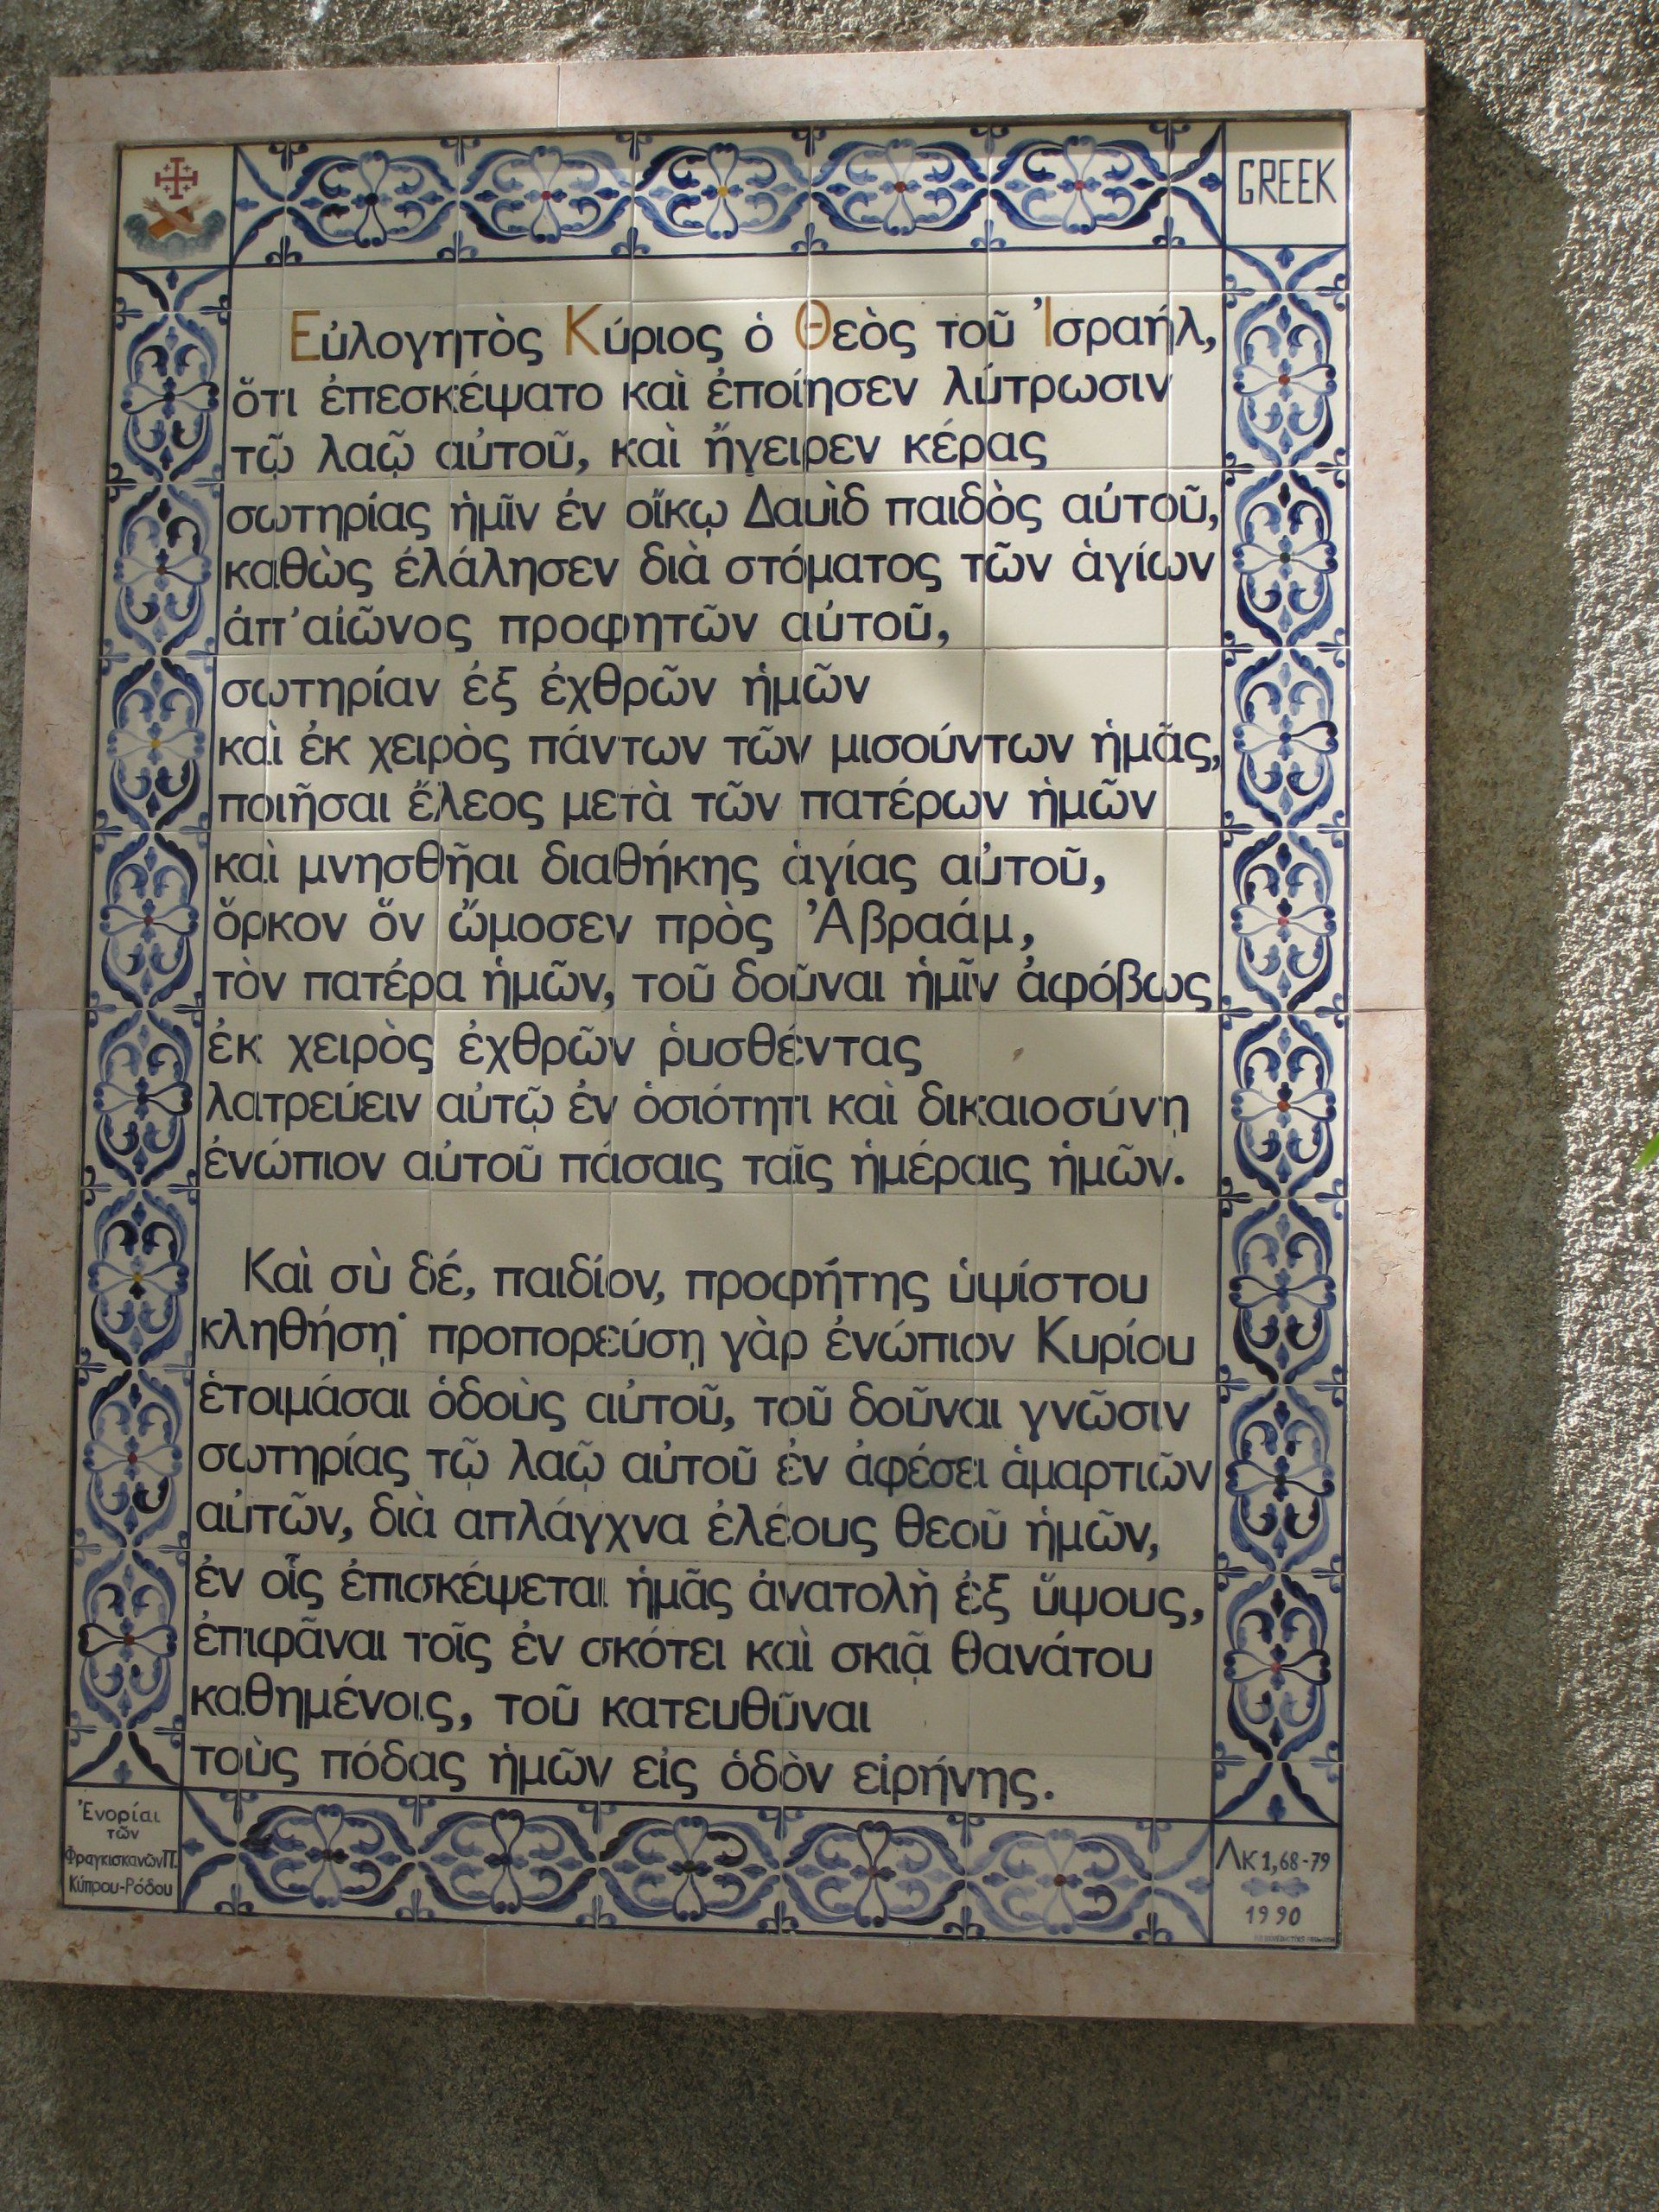 GREEK
Εὐλογητὸς Κύριος ὁ Θεὸς τοῦ Ἰσραήλ,
ὅτι ἐπεσκέψατο καὶ ἐποίησεν λύτρωσιν
τῷ λαῷ αὐτοῦ, καὶ ἤγειρεν κέρας
σωτηρίας ἡμῖν ἐν οἴκῳ Δαυὶδ παιδὸς αὐτοῦ,
καθὼς ἐλάλησεν διὰ στόματος τῶν ἁγίων
ἀπ'αἰῶνος προφητῶν αὐτοῦ,
σωτηρίαν ἐξ ἐχθρῶν ἡμῶν
καὶ ἐκ χειρὸς πάντων τῶν μισούντων ἡμᾶς,
ποιῆσαι ἔλεος μετὰ τῶν πατέρων ἡμῶν
καὶ μνησθῆαι διαθήκης ἁγίας αὐτοῦ,
ὅρκον ὅν ὤμοσεν πρὸς Ἀβραάμ,
τὸν πατέρα ἡμῶν, τοῦ δοῦναι ἡμῖν ἀφόβως
ἐκ χειρὸς ἐχθρῶν ῥυσθέντας
λατρεύειν αὐτῷ ἐν ὁσιότητι καὶ δικαιοσύνῃ
ἐνώπιον αὐτοῦ πάσαις ταῖς ἡμέραις ἡμῶν.
Καὶ σὺ δέ, παιδίον, προφήτης ὑψίστου
κληθήσῃ· προπορεύσῃ γὰρ ἐνώπιον Κυρίου
ἑτοιμάσαι ὁδοὺς αὐτοῦ, τοῦ δοῦναι γνῶσιν
σωτηρίας τῷ λαῷ αὐτοῦ ἐν ἀφέσει ἁμαρτιῶν
αὐτῶν, διὰ απλάγχνα ἐλέους θεοῦ ἡμῶν,
ἐν οἷς ἐπισκέψεται ἡμᾶς ἀνατολὴ ἐξ ὕψους,
ἐπιφᾶναι τοῖς ἐν σκότει καὶ σκιᾷ θανάτου
καθημένοις, τοῦ κατευθῦναι
τοὺς πόδας ἡμῶν εἰς ὁδὸν εἰρήνης.
Ἐνορίαι
τῶν
Φραγκισκανῶν Π.
Κύπρου-Ρόδου
Λκ 1,68-79
1990